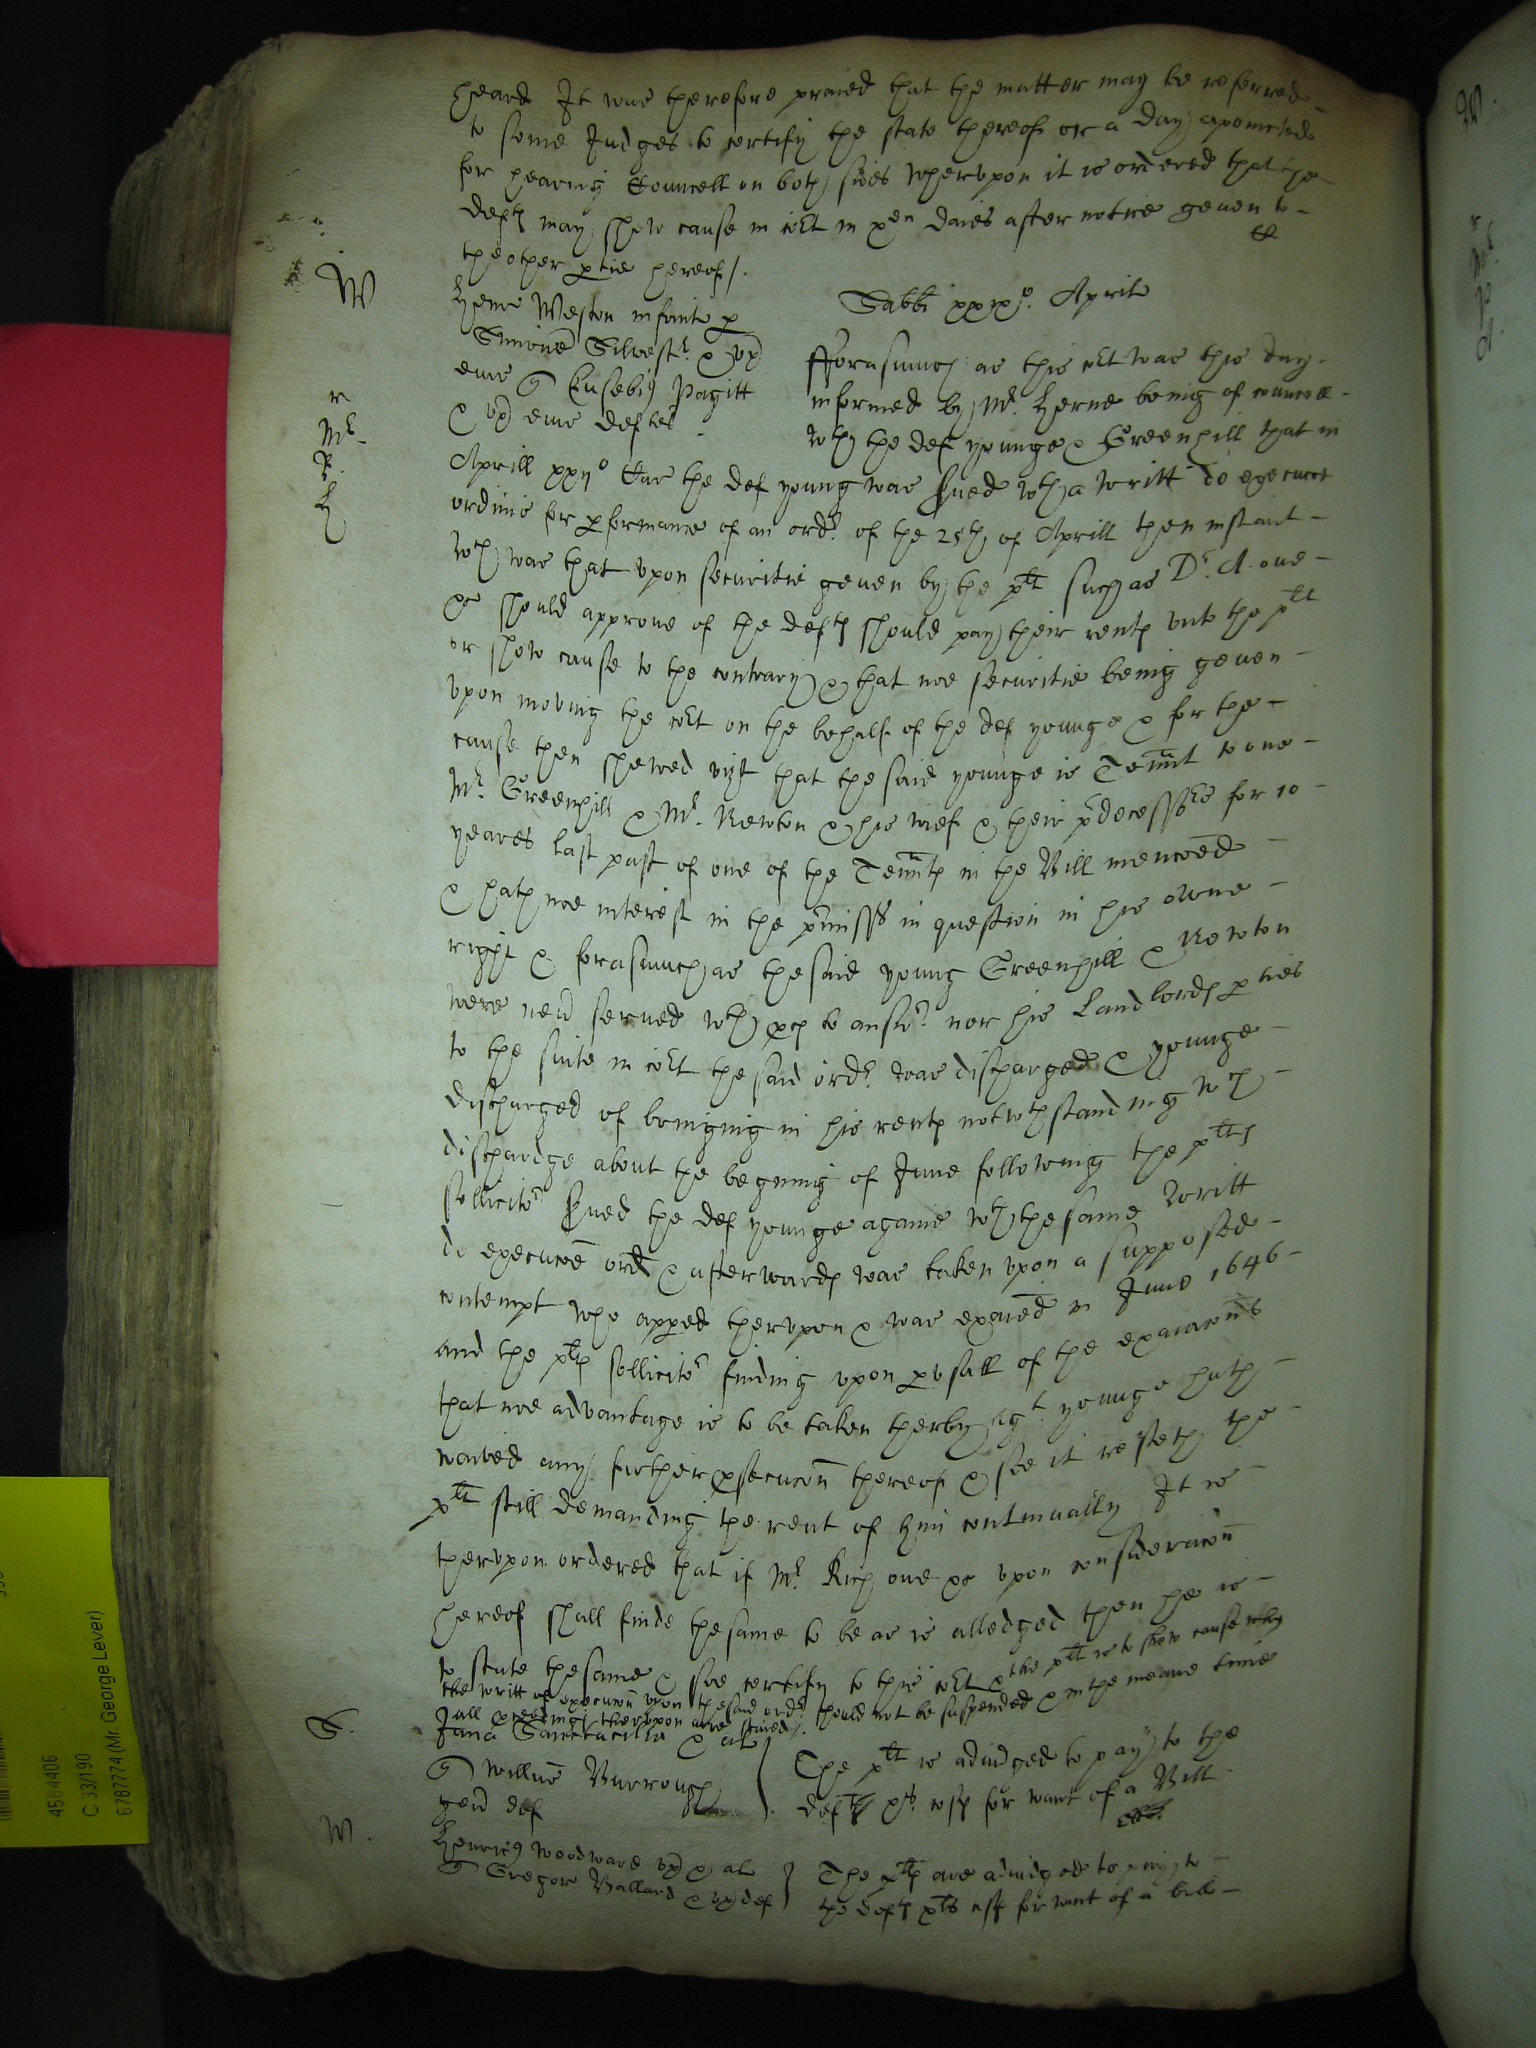 heard It was therefore praied that the matter may be referred
to some Judges to certify the state thereof or a day apointed
for hearing Councell on both sides Whervpon it is ordered that the
defts may shew cause in cot in xen daies after notice geuen to
theother ptie hereof /.
W
Sabbi xxixo. Aprilis
Weston infante p
Simone Silvestr & vx
eius Eusebiu Pagitt
& vx eius deftes
fforasmuch as this cot was this day
informed by Mr. Herne being of councell
wth the def younge & Greenhill that in
r
Mr.
R.
H
Aprill xxijo Car the def young was sued wth a writt de execucoe
ordinis for pformance of an ordr. of the 25th of Aprill then instant
wch was that vpon securitie geuen by the plt such as Dr. A. one
&c should approue of the defts should pay their rents vnto the plt
or shew cause to the contrary & that noe securitie being geuen
vpon moving the cot on the behalf of the def younge & for the
cause then shewed vizt that the said younge is Tennt to one
Mr. Greenhill & Mr. Newton & his wief & their pdecessors for 10
yeares last past of one of the Temts in the Bill menconed
& hath noe interest in the pmisses in question in his owne
right & forasmuch as the said young Greenhill & Newton
were neu served wth pces to answr. nor his Landlords pties
to the suite in cot the said ordr. was discharged & younge
discharged of bringing in his rents notwthstanding wch
dischardge about the beginnig of June following the plts
sollicitor sued the def younge againe wth the same writt
de execucoe ord & afterwards was taken vpon a supposed
contempt who apped thervpon & was exaied in June 1646
and the plts sollicitor finding vpon pvsall of the exaiacons
that noe advantage is to be taken therby agt. younge hath
waived any further psecucon thereof & soe it resteth the
plt still demanding the rent of him continually It is
thervpon ordered that if Mr. Rich one &c vpon consideracon
hereof shall finde thesame to be as is alledged then he is
to state thesame & soe certify to this cot & the plt is to shew cause why
the writt of execucon vpon thesaid ordr. should not be suspended & in the meane time
all pceedings thervpon are staied /.
S.
Jana & al
Willmo Burrough
gen def
The plt is adiudged to pay to the
deft costs for want of a Bill
W.
Henricus Woodward & al
Gregorio Ballard & vx def
The plts are adiudged to pay to
the defts for want of a bill
4584406
C 33/190
6787774 (Mr. George Lever)